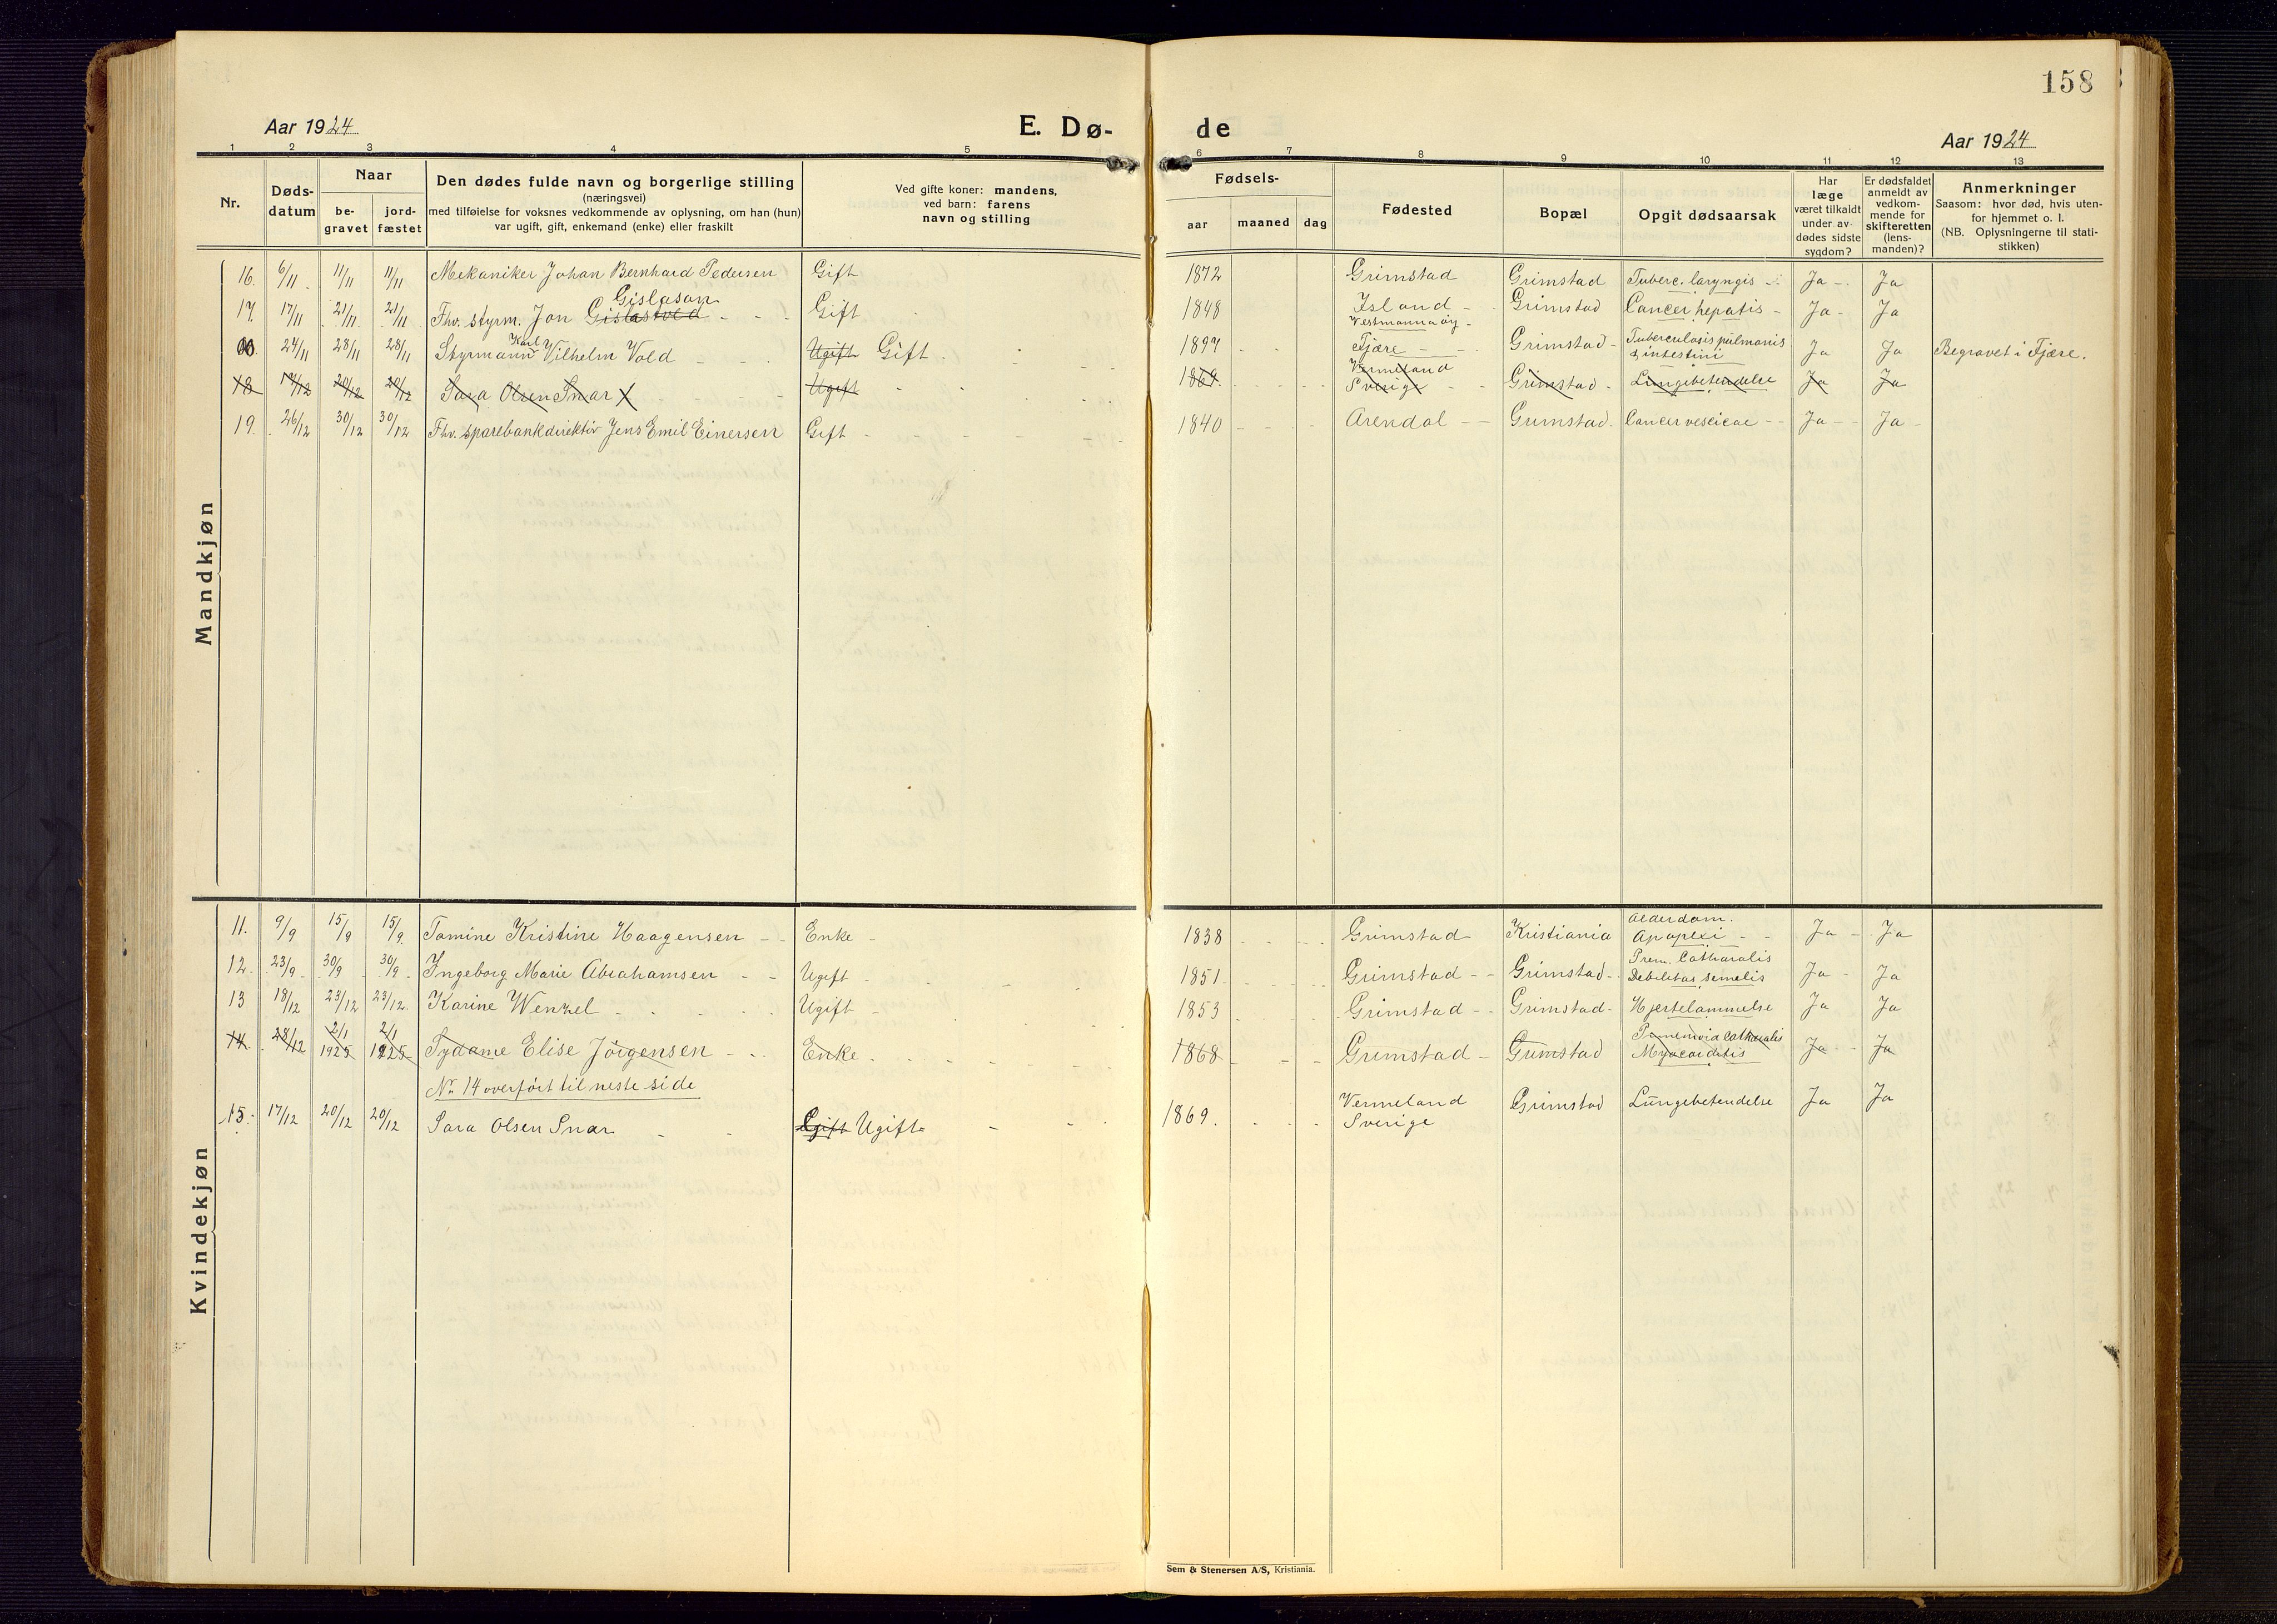 158
Aar 1924
E. Dø-
de
Aar 1924
1 2 3 4 5 6 7 8 9 10 11 12 13
Nr.
Døds-
datum
Naar
be-
gravet
jord-
fæstet
Den dødes fulde navn og borgerlige stilling
(næringsvei)
med tilføielse for voksnes vedkommende av oplysning, om han (hun)
var ugift, gift, enkemand (enke) eller fraskilt
Ved gifte koner: mandens,
ved barn: farens
navn og stilling
Fødsels-
aar
maaned
dag
Fødested
Bopæl
Opgit dødsaarsak
Har
læge
været tilkaldt
under av-
dødes sidste
sygdom?
Er dødsfaldet
anmeldt av
vedkom-
mende for
skifteretten
(lens-
manden)?
Anmerkninger
Saasom: hvor død, hvis uten-
for hjemmet o. l.
(NB. Oplysningerne til stati-
stikken)
Mandkjøn
16. 6/11 11/11 11/11 Mekaniker Johan Bernhard Pedersen Gift 1872 Grimstad Grimstad Tuberc. laryngis Ja Ja
Gislason
17. 17/11 21/11 21/11 Fhv. styrm. Jon Gislastved Gift 1848 Island Grimstad Cancer hepatis Ja Ja
Vestmannaöy
Karl
24/11 28/11 28/11 Styrmann Vilhelm Vold Ugift Gift 1897 Fjære Grimstad Tuberculosis pulmonis Ja Ja Begravet i Fjære.
& intestini
Vermeland
18 17/12 20/12 20/12 Sara Olsen Snar Ugift 1869 Sverige Grimstad Lungebetendelse Ja Ja
19. 26/12 30/12 30/12 Fhv. sparebankdirektör Jens Emil Einersen Gift 1840 Arendal Grimstad Cancer vesicae Ja Ja
Kvindekjøn
Alderdom.
11. 9/9 15/9 15/9 Tomine Kristine Haagensen Enke 1838 Grimstad Kristiania Apoplexi Ja Ja
Pnem. Catharalis
12. 23/9 30/9 30/9 Ingeborg Marie Abrahamsen Ugift 1851 Grimstad Grimstad Debilitas senelis Ja Ja
13 18/12 23/12 23/12 Karine Wenzel Ugift 1853 Grimstad Grimstad Hjertelammelse Ja Ja
14. 28/12 2/1 1925 2/1 1925 Sydame Elise Jörgensen Enke 1868 Grimstad Grimstad Catharalis Ja Ja
Myocarditis
Nr. 14 overfört til neste side
15. 17/12 20/12 20/12 Sara Olsen Snar Gift Ugift 1869. Vermeland Grimstad Lungebetendelse Ja Ja
Sverige
Sem & Stenersen A/S, Kristiania.